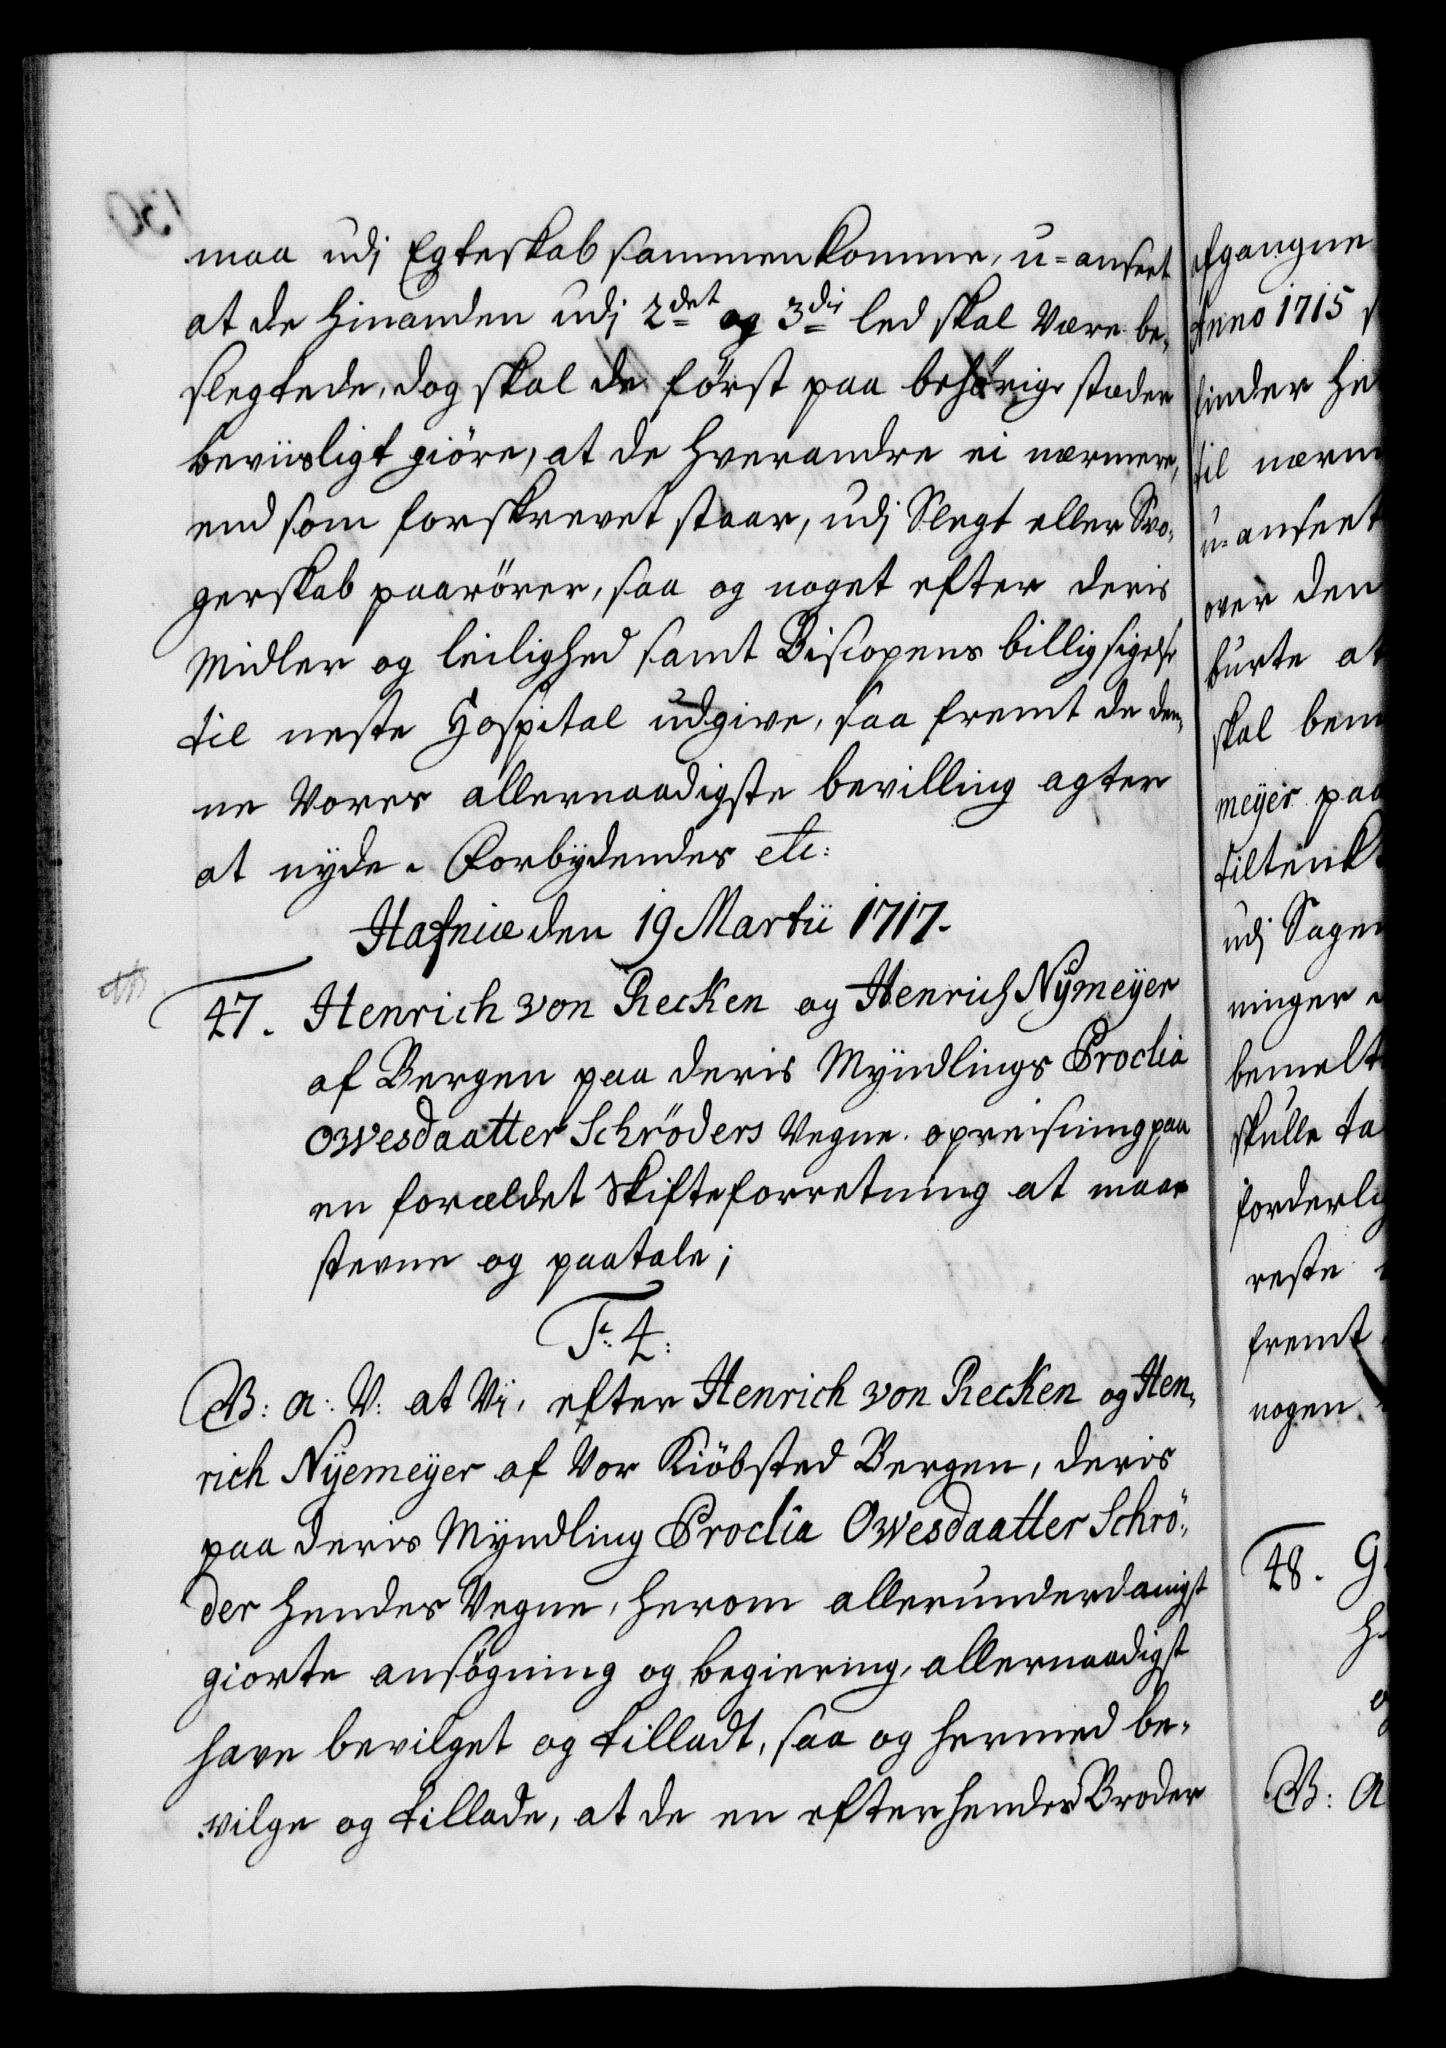 maa udj Egteskab sammenkomme, u-anseet
at de hinanden udj 2det og 3die led skal være be-
slegtede, dog skal de først paa behörige stæder
beviisligt giöre, at de hverandre ei nærmere,
end som forskrevet staar, udj Slegt eller Svo-
gerskab paarörer, saa og noget efter deris
Midler og leilighed samt Biscopens billigsigelse
til neste Hospital udgive, saa fremt de den-
ne Vores allernaadigste bevilling agter
at nyde. Forbydendes etc:
Hafniæ den 19 Martii 1717.
47. Henrich von Recken og Henrich Nÿmeÿer
af Bergen paa deris Myndlings Proclia
Owesdaatter Schröders Vegne. opreisning paa
en forældet Skifteforretning at maa
stevne og paatale;
F. 4.
B: A: V: at Vi, efter Henrich von Recken og Hen-
rich Nÿemeÿer af Vor Kiöbsted Bergen, deris
paa deris Myndling Proclia Owesdaatter Schrö-
der hendes Vegne, herom allerunderdanigst
giorte ansögning og begiering, allernaadigst
have bevilget og tilladt, saa og hermed be-
vilge og tillade, at de en efter hendes Broder
afgangne
Anno 1715
finder he
til nærm
u-anseet
over den
burte at
skal bem
meÿer paa
tiltenkt
udj Sagen
ninger
bemelte
skulle ta
forderlig
reste
fremt
nogen
48. G
h
B: A